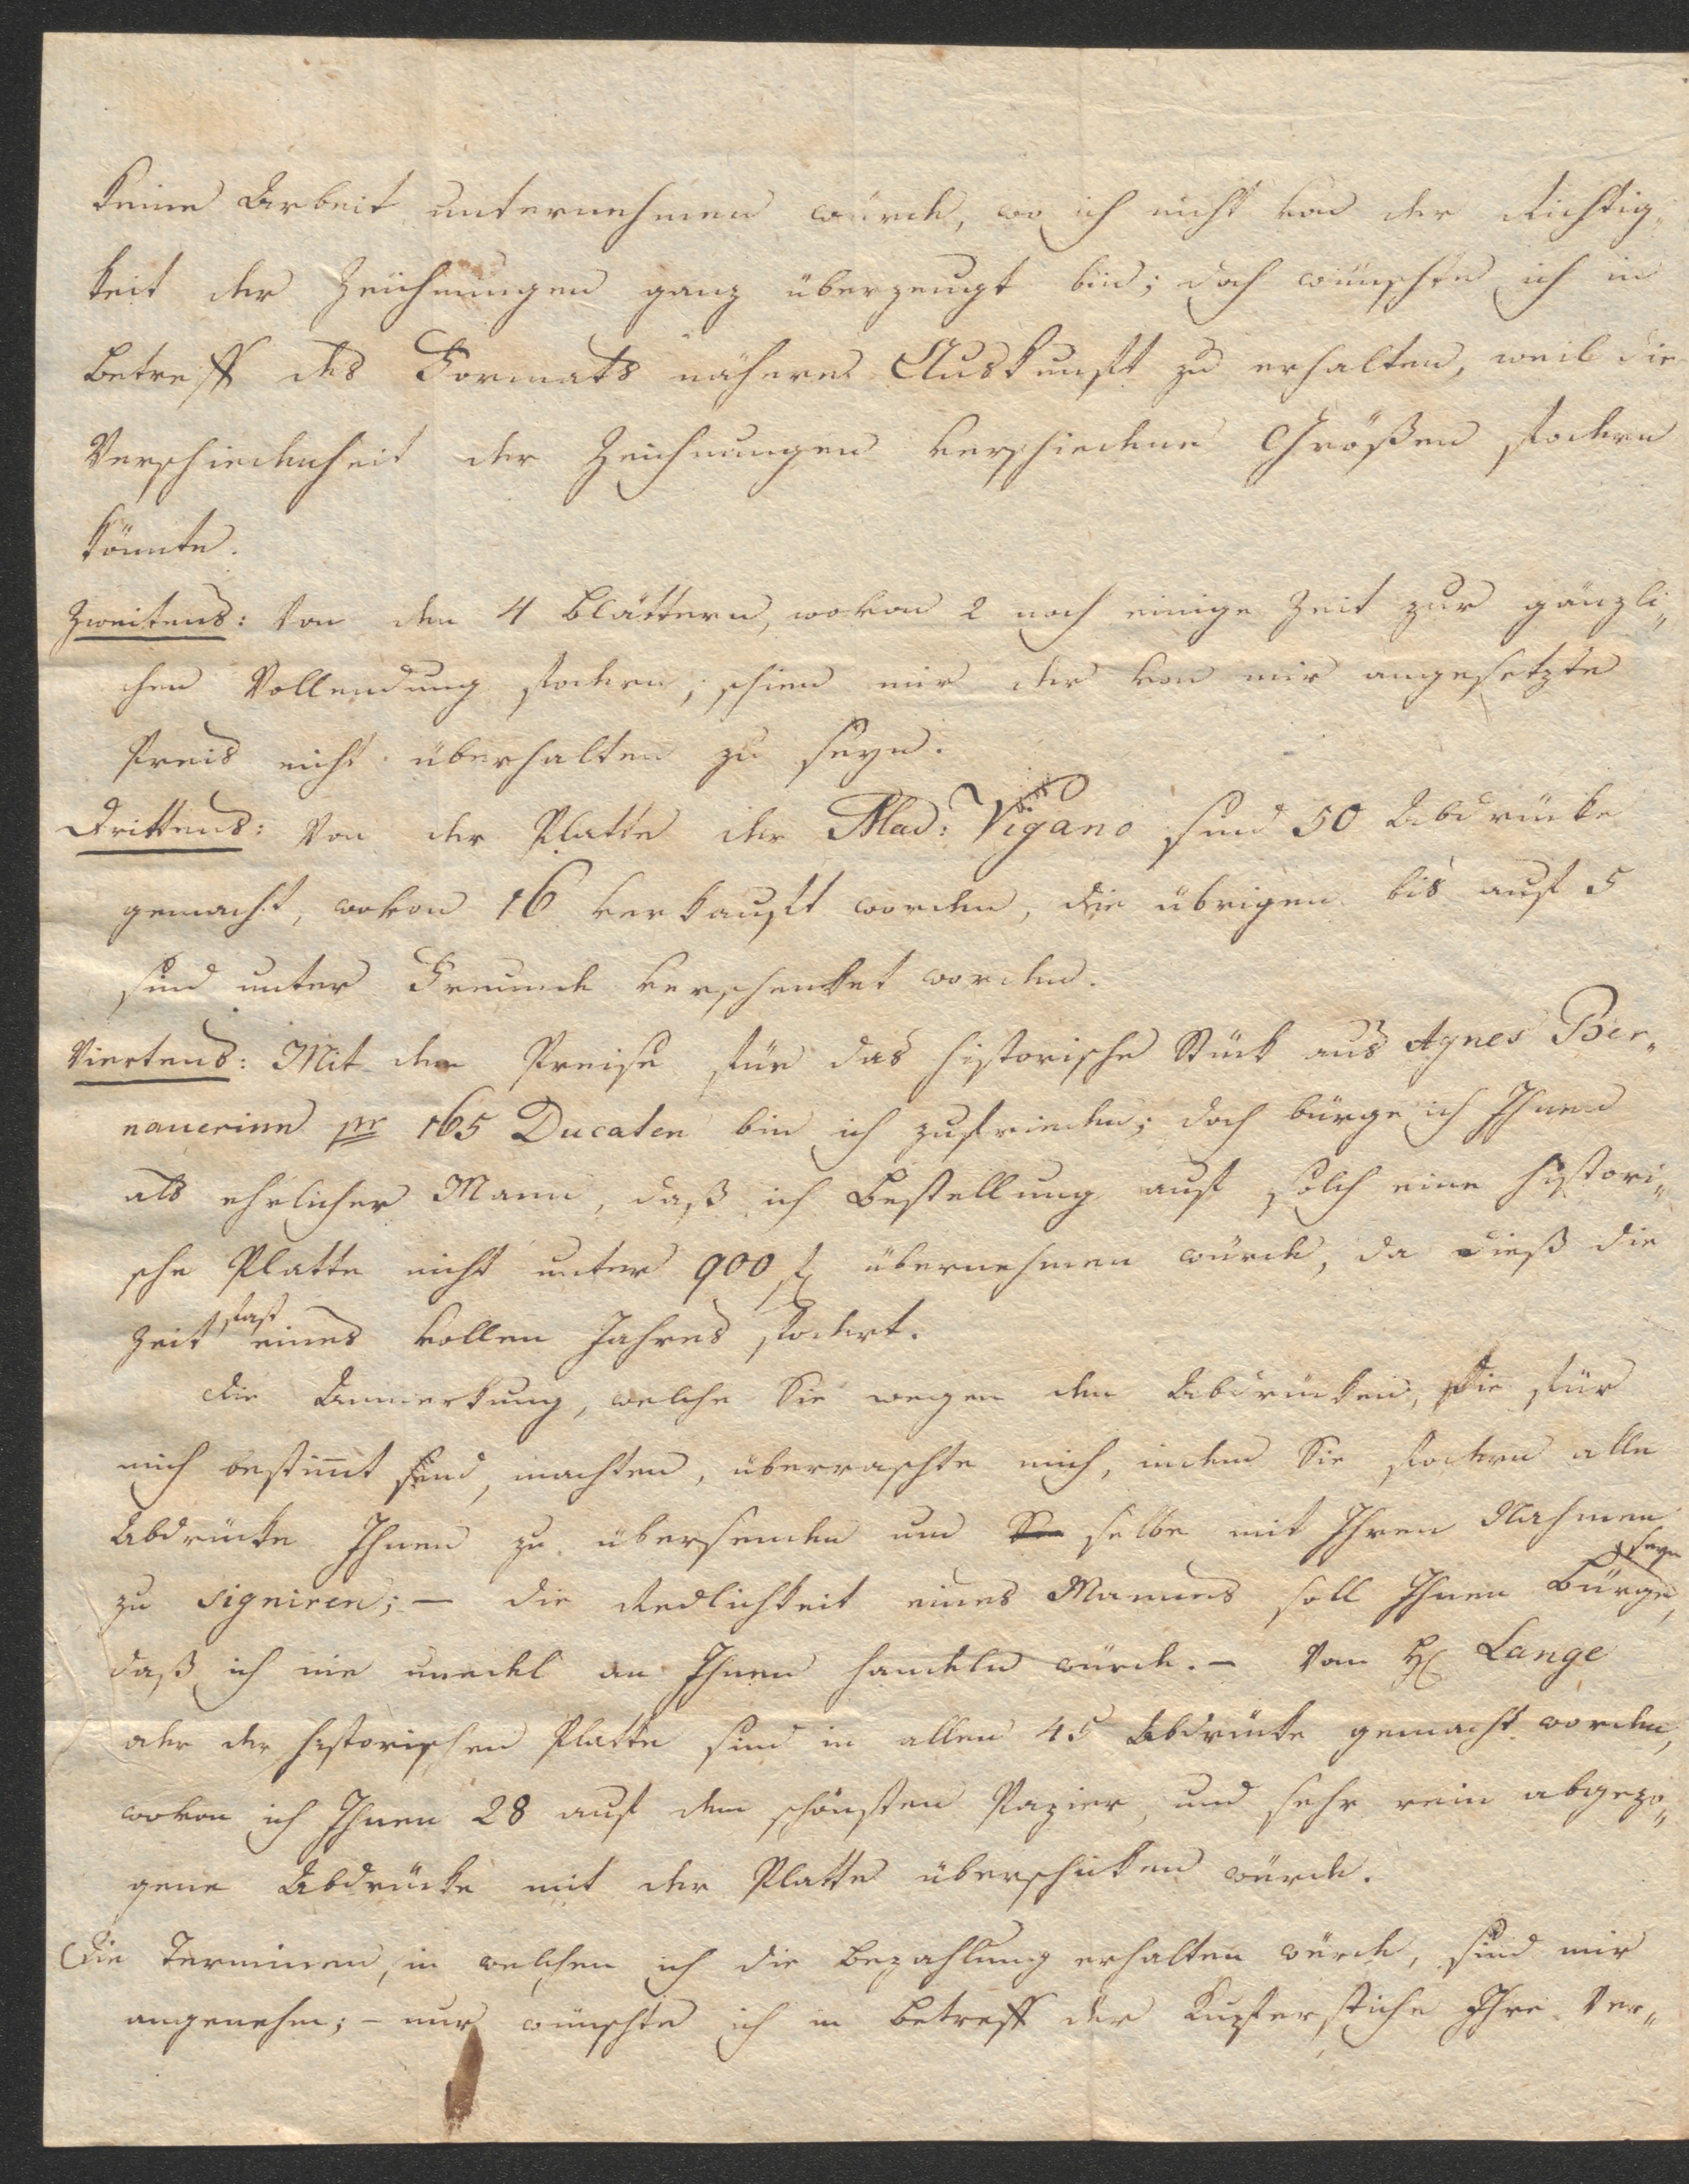 keine Arbeit unternehmen würde, wo ich nicht von der Richtig„
keit der Zeichnungen ganz überzeugt bin; doch wünschte ich in
Betreff des Formats nähere Auskunft zu erhalten, weil die
Verschiedenheit der Zeichnungen verschiedene Größen fodern
könnte.
Zweitens: Von den 4 Blättern, wovon 2 noch einige Zeit zur gänzli„
chen Vollendung fodern, schien mir der von mir angesetzte
Preis nicht überhalten zu seyn.
Drittens: Von der Platte der Mad: Vigano sind 50 Abdrücke
gemacht, wovon 16 verkauft worden, die übrigen bis auf 5
sind unter Freunde verschenket worden.
Viertens: Mit dem Preise für das historische Stück aus Agnes Ber„
nauerinn pr 165 Ducaten bin ich zufrieden; doch bürge ich Ihnen
als ehrlicher Mann, daß ich Bestellung auf solch eine histori„
sche Platte nicht unter 900 f übernehmen würde, da dieß die
Zeit fast eines vollen Jahres fodert.
Die Anmerkung, welche Sie wegen den Abdrücken, die für
mich bestimt sind, machten, überraschte mich, indem Sie fodern alle
Abdrücke Ihnen zu übersenden um selbe mit Ihren Nahmen
zu signiren; – die Redlichkeit eines Mannes soll Ihnen Bürge seyn,
daß ich nie unedel an Ihnen handeln würde. – Von H Lange
oder der historischen Platte sind in allen 45 Abdrücke gemacht worden,
wovon ich Ihnen 28 auf dem schönsten Papier, und sehr rein abgezo„
gene Abdrücke mit der Platte überschicken würde.
Die Terminen, in welchen ich die Bezahlung erhalten würde, sind mir
angenehm; – nur wünschte ich in Betreff der Kupferstiche Ihre Ver„